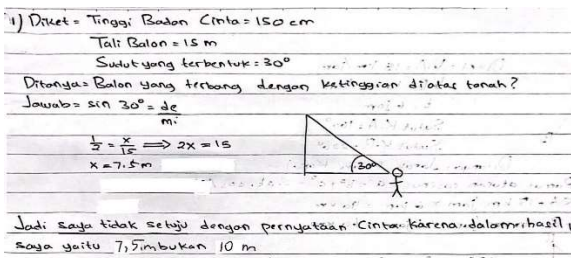 1) Diket = Tinggi Badan Cinta = 150 cm
Tali Balon = 15 m
Sudut yang terbentuk = 30°
Ditanya = Balon yang terbang dengan ketinggian diatas tanah?
Jawab = sin 30° = de/mi
1/2 = x/15 ⟹ 2x = 15
x = 7.5 m
30°
Jadi saya tidak setuju dengan pernyataan Cinta karena dalam hasil
saya yaitu 7,5 m bukan 10 m